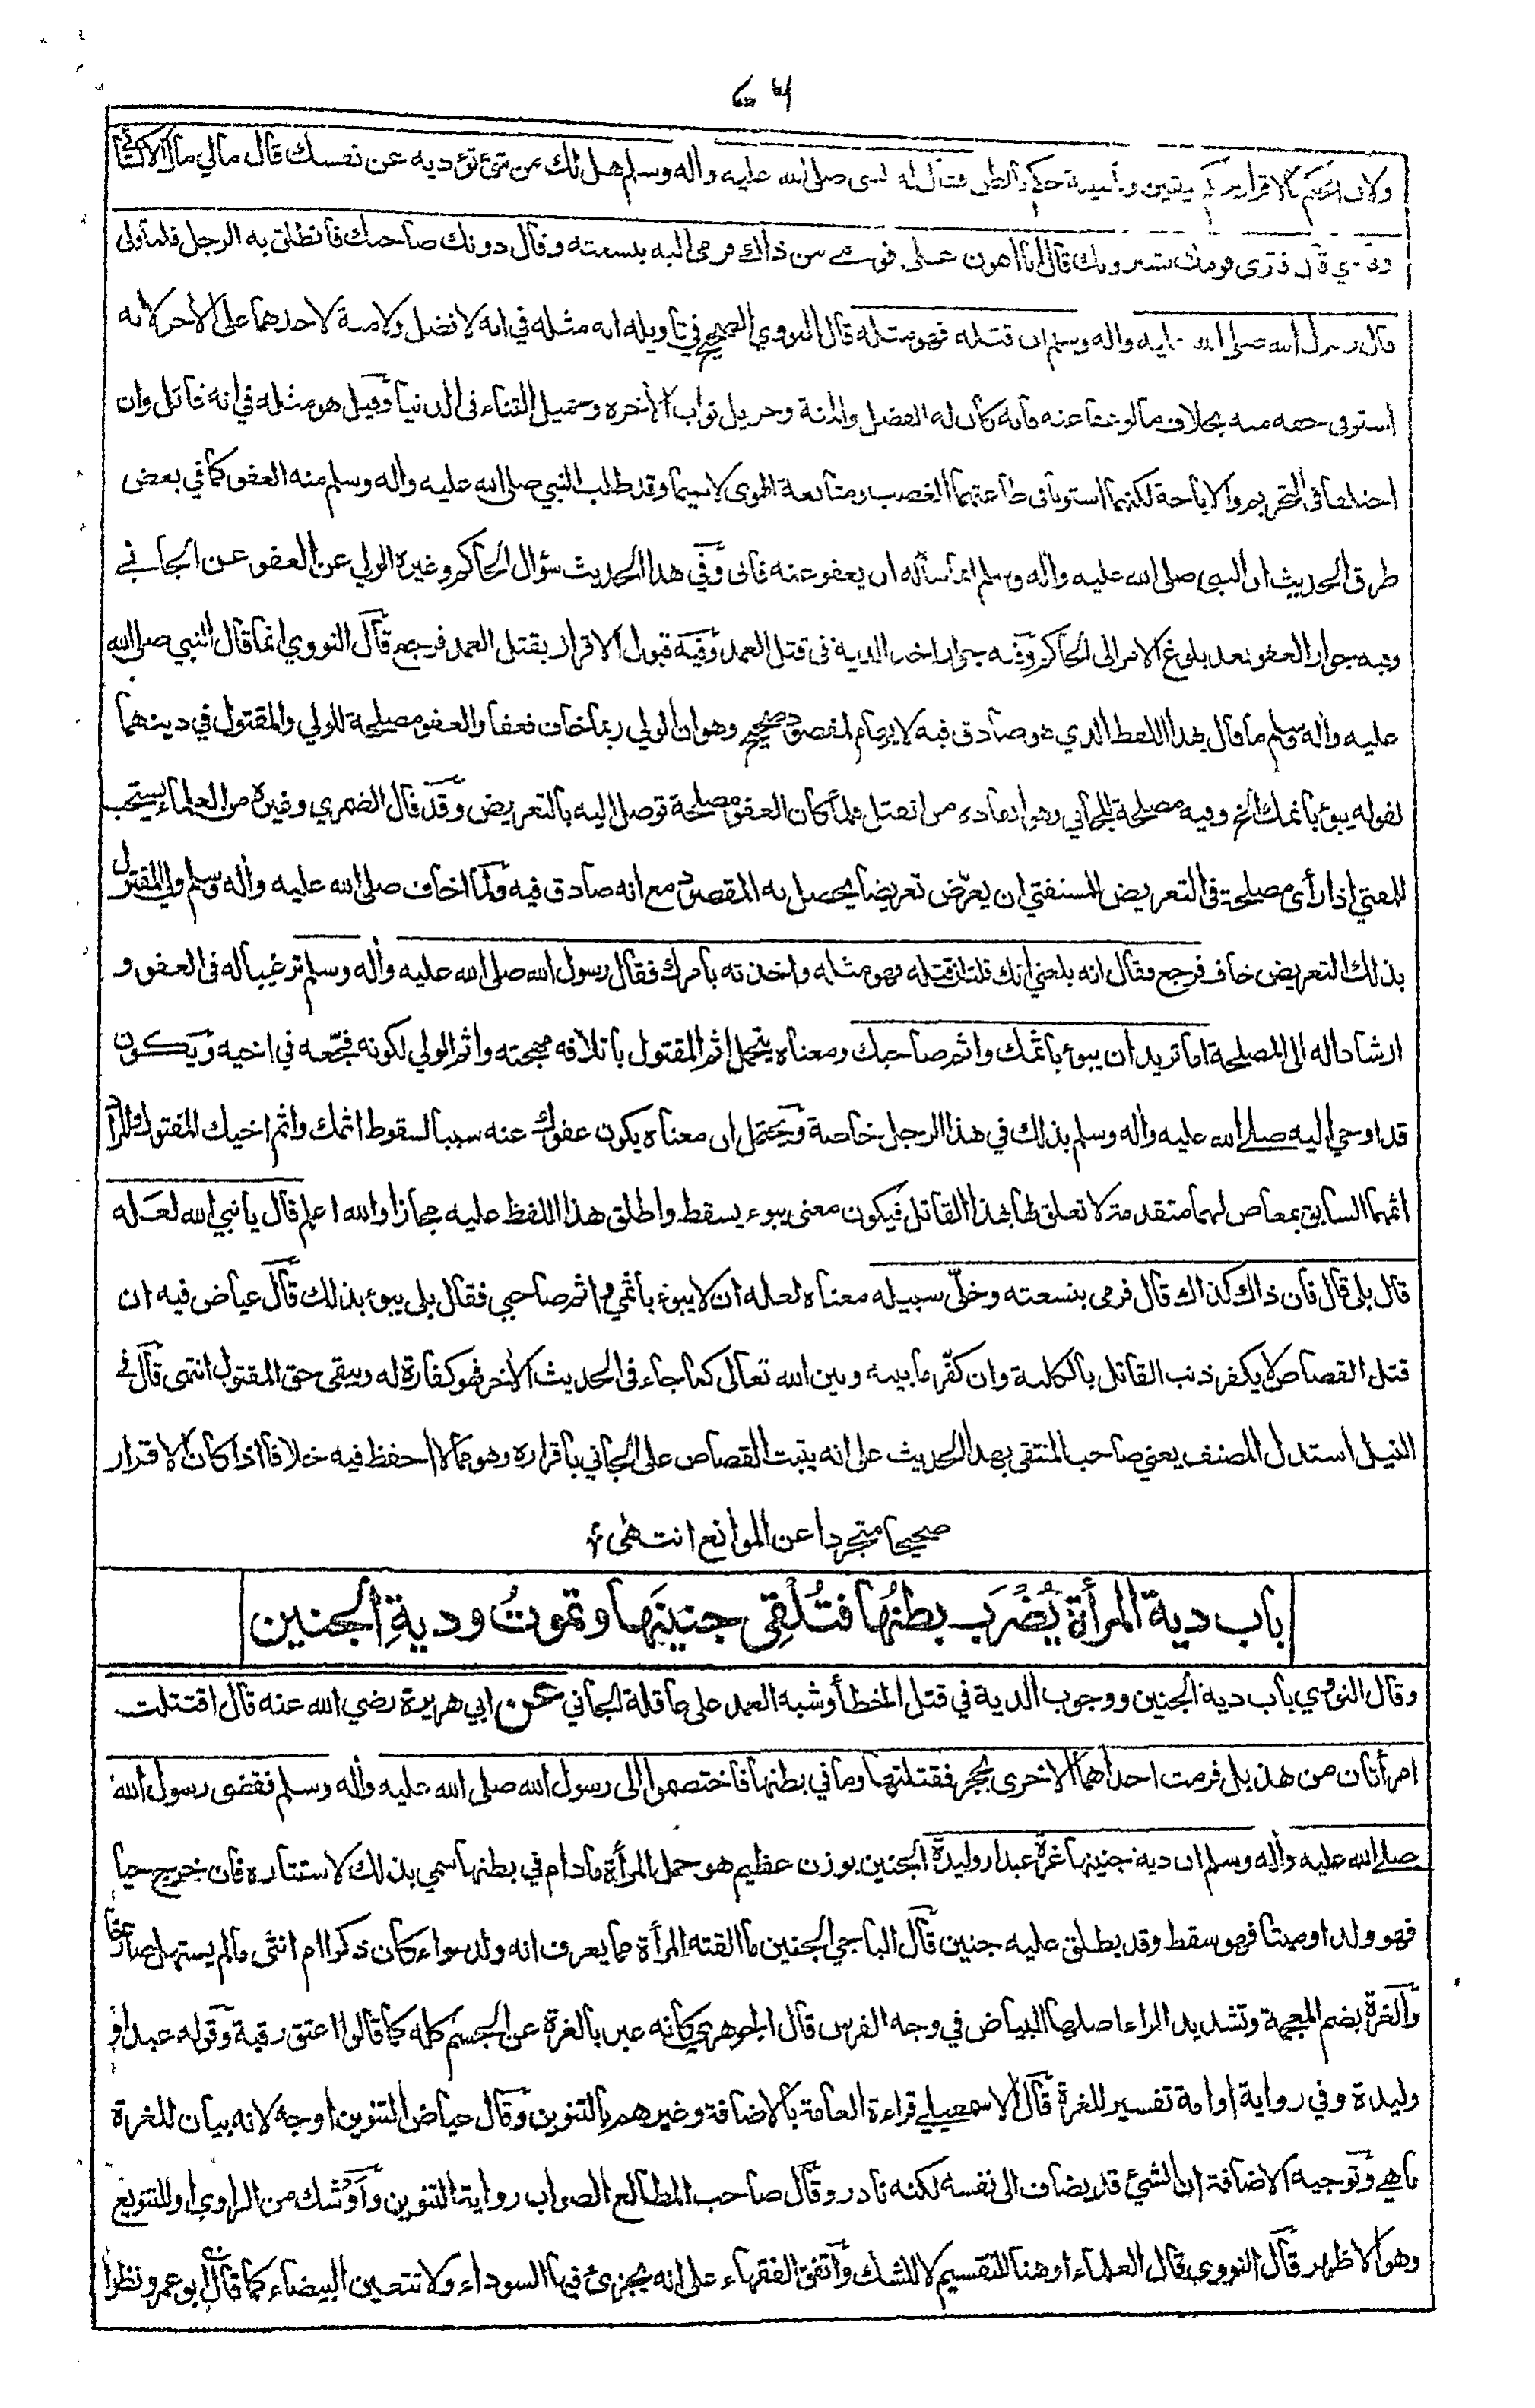 ولان الحكم بالاقرار حكم بيقين وبالبينة حكم بالظن فقال له النبي صلى الله عليه واله وسلم هل لك من شئ تؤديه عن نفسك قال مالي مال الا كسائي
وفأسي قال فترى قومك يشترونك قال انا اهون على قومي من ذاك فرمى اليه بنسعته وقال دونك صاحبك فانطلق به الرجل فلما ولى
قال رسول الله صلى الله عليه واله وسلم ان قتله فهو مثله قال النووي الصحيح في تاويله انه مثله في انه لا فضل ولا منة لاحدهما على الاخر لانه
استوفى حقه منه بخلاف ما لو عفا عنه فانه كان له الفضل والمنة وجزيل ثواب الاخرة وجميل الثناء في الدنيا وقيل هو مثله في انه قاتل وان
اختلفا في التحريم والاباحة لكنهما استويا في طاعتهما الغضب ومتابعة الهوى لاسيما وقد طلب النبي صلى الله عليه واله وسلم منه العفو كما في بعض
طرق الحديث ان النبي صلى الله عليه واله وسلم سأله ان يعفو عنه فابى وفي هذا الحديث سؤال الحاكم وغيره الولي عن العفو عن الجاني
وفيه جواز العفو بعد بلوغ الامر الى الحاكم وفيه جواز اخذ الدية في قتل العمد وفيه قبول الاقرار بقتل العمد فرجع قال النووي انما قال النبي صلى الله
عليه واله وسلم ما قال بهذا اللفظ الذي هو صادق فيه لايهام لمقصود صحيح وهو ان الولي ربما خاف فعفا والعفو مصلحة للولي والمقتول في دينهما
لقوله يبوء باثمك الخ وفيه مصلحة للجاني وهو انقاذه من القتل فلما كان العفو مصلحة توصل اليه بالتعريض وقد قال الضمري وغيره من العلماء يستحب
للمفتي اذا رأى مصلحة في التعريض للمستفتي ان يعرّض تعريضا يحصل به المقصود مع انه صادق فيه ولما اخاف صلى الله عليه واله وسلم ولي المقتول
بذلك التعريض خاف فرجع فقال انه بلغني انك قلت ان قتله فهو مثله واخذته بامرك فقال رسول الله صلى الله عليه واله وسلم ترغيبا له في العفو و
ارشادا له الى المصلحة اما تريد ان يبوء باثمك واثم صاحبك ومعناه يتحمل اثم المقتول باتلافه مهجته واثم الولي لكونه فجّعه في اخيه ويكون
قد اوحي اليه صلى الله عليه واله وسلم بذلك في هذا الرجل خاصة ويحتمل ان معناه يكون عفوك عنه سببا لسقوط اثمك واثم اخيك المقتول والمراد
اثمهما السابق بمعاص لهما متقدمة لا تعلق لها بهذا القاتل فيكون معنى يبوء يسقط واطلق هذا اللفظ عليه مجازا والله اعلم قال يا نبي الله لعله
قال بلى قال فان ذاك كذاك قال فرمى بنسعته وخلّى سبيله معناه لعله ان لا يبوء باثمي واثم صاحبي فقال بلى يبوء بذلك قال عياض فيه ان
قتل القصاص لا يكفر ذنب القاتل بالكلية وان كفّر ما بينه وبين الله تعالى كما جاء في الحديث الاخر فهو كفارة له ويبقى حق المقتول انتهى قال في
النيل استدل المصنف يعني صاحب المنتقى بهذا الحديث على انه يثبت القصاص على الجاني باقراره وهو مما لا احفظ فيه خلافا اذا كان الاقرار
صحيحا متجردا عن الموانع انتهى
باب دية المرأة يُضْرَب بطنُها فتُلْقِي جنينَها وتموتُ وديةِ الجنين
وقال النووي باب دية الجنين ووجوب الدية في قتل الخطأ وشبه العمد على عاقلة الجاني عن ابي هريرة رضي الله عنه قال اقتتلت
امرأتان من هذيل فرمت احداهما الاخرى بحجر فقتلتها وما في بطنها فاختصموا الى رسول الله صلى الله عليه واله وسلم فقضى رسول الله
صلى الله عليه واله وسلم ان دية جنينها غرة عبد او وليدة الجنين بوزن عظيم هو حمل المرأة ما دام في بطنها سمي بذلك لاستتاره فان خرج حيا
فهو ولد او ميتا فهو سقط وقد يطلق عليه جنين قال الباجي الجنين ما القته المرأة مما يعرف انه ولد سواء كان ذكرا ام انثى ما لم يستهل صارخا
والغرة بضم المعجمة وتشديد الراء اصلها البياض في وجه الفرس قال الجوهري كانه عبر بالغرة عن الجسم كله كما قالوا اعتق رقبة وقوله عبد او
وليدة وفي رواية او امة تفسير للغرة قال الاسمعيلي قراءة العامة بالاضافة وغيرهم بالتنوين وقال عياض التنوين اوجه لانه بيان للغرة
ما هي وتوجيه الاضافة ان الشيء قد يضاف الى نفسه لكنه نادر وقال صاحب المطالع الصواب رواية التنوين واو شك من الراوي او للتنويع
وهو الاظهر قال النووي قال العلماء او هنا للتقسيم لا للشك واتفق الفقهاء على انه يجزئ فيها السوداء ولا تتعين البيضاء كما قال ابو عمرو نظرا